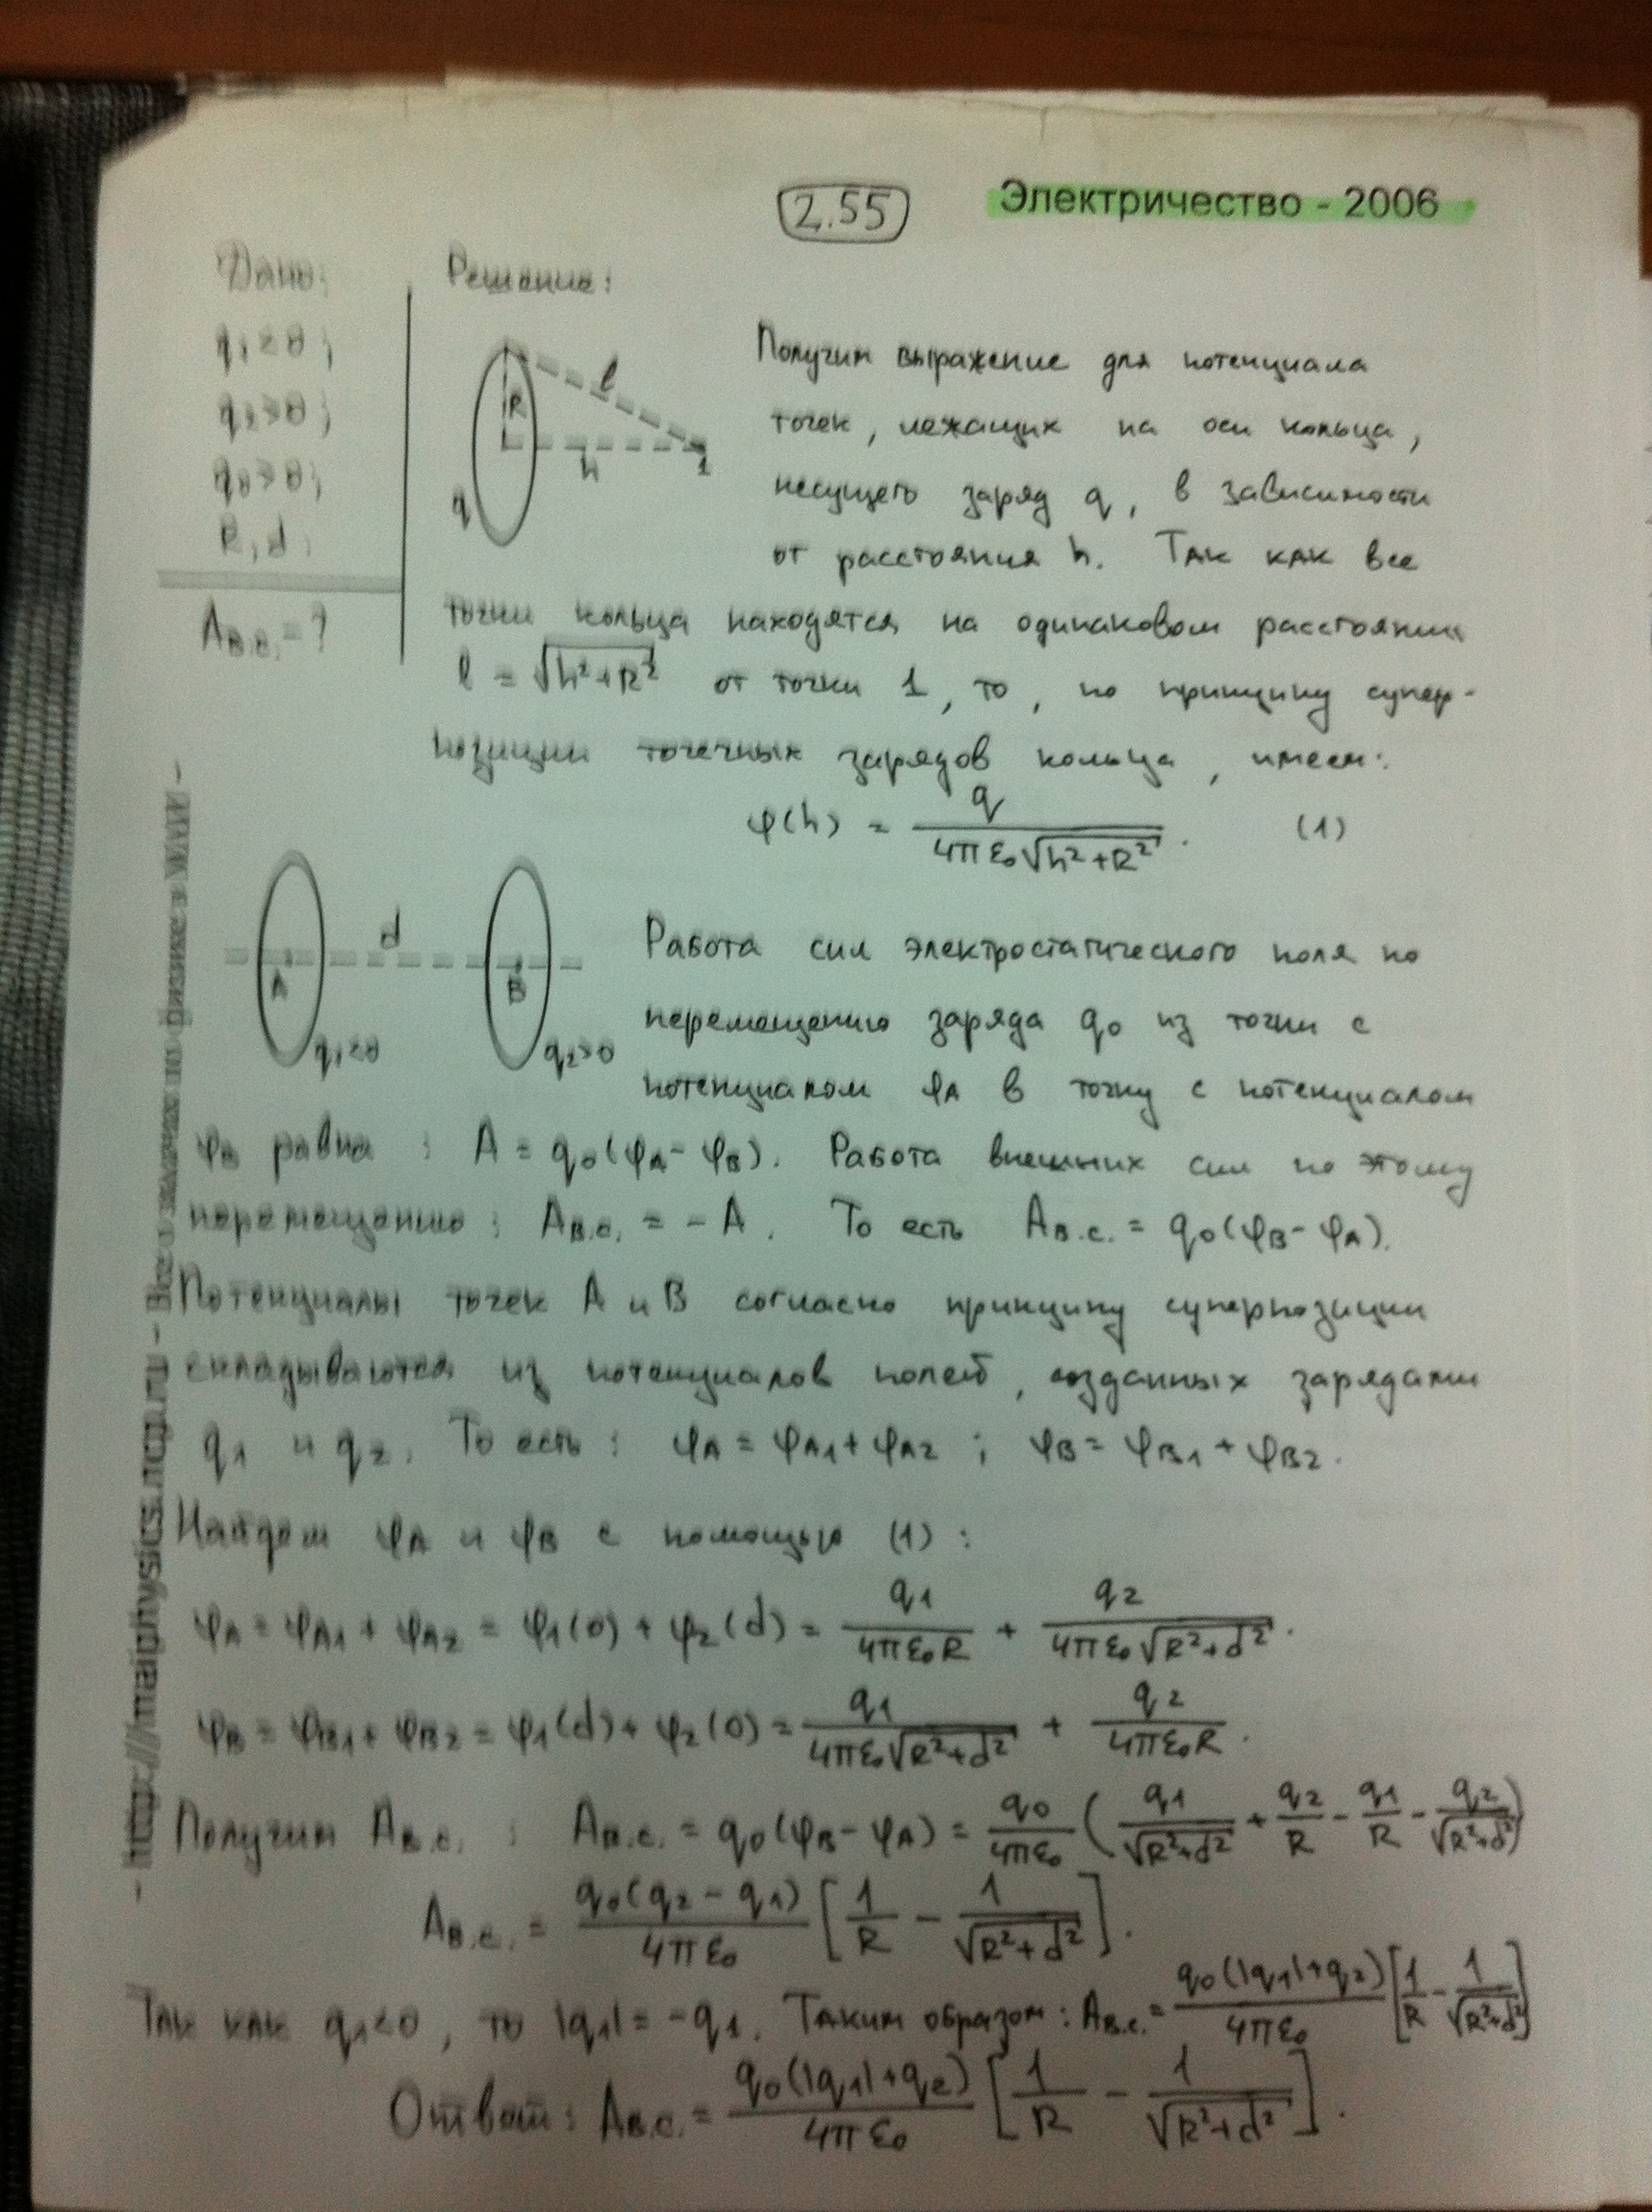 2.55 Электричество - 2006
Дано:
q₁<0;
q₂>0;
q₀>0;
R, d;
Aв.с. = ?
Решение:
R l h 1 q
Получим выражение для потенциала
точек, лежащих на оси кольца,
несущего заряд q, в зависимости
от расстояния h. Так как все
точки кольца находятся на одинаковом расстоянии
l = √(h²+R²) от точки 1, то, по принципу супер-
позиции точечных зарядов кольца, имеем:
φ(h) = q / (4πε₀√(h²+R²)). (1)
A d B q₁<0 q₂>0
Работа сил электростатического поля по
перемещению заряда q₀ из точки с
потенциалом φA в точку с потенциалом
φB равна: A = q₀(φA - φB). Работа внешних сил по этому
перемещению: Aв.с. = - A. То есть Aв.с. = q₀(φB - φA).
Потенциалы точек A и B согласно принципу суперпозиции
складываются из потенциалов полей, созданных зарядами
q₁ и q₂. То есть: φA = φA1 + φA2; φB = φB1 + φB2.
Найдем φA и φB с помощью (1):
φA = φA1 + φA2 = φ₁(0) + φ₂(d) = q₁/(4πε₀R) + q₂/(4πε₀√(R²+d²)).
φB = φB1 + φB2 = φ₁(d) + φ₂(0) = q₁/(4πε₀√(R²+d²)) + q₂/(4πε₀R).
Получим Aв.с.: Aв.с. = q₀(φB - φA) = q₀/(4πε₀) (q₁/√(R²+d²) + q₂/R - q₁/R - q₂/√(R²+d²))
Aв.с. = q₀(q₂ - q₁)/(4πε₀) [1/R - 1/√(R²+d²)].
Так как q₁<0, то |q₁| = -q₁. Таким образом: Aв.с. = q₀(|q₁|+q₂)/(4πε₀) [1/R - 1/√(R²+d²)]
Ответ: Aв.с. = q₀(|q₁|+q₂)/(4πε₀) [1/R - 1/√(R²+d²)].
- http:///maiphysics.narod.ru - Все о задачах по физике в МАИ -